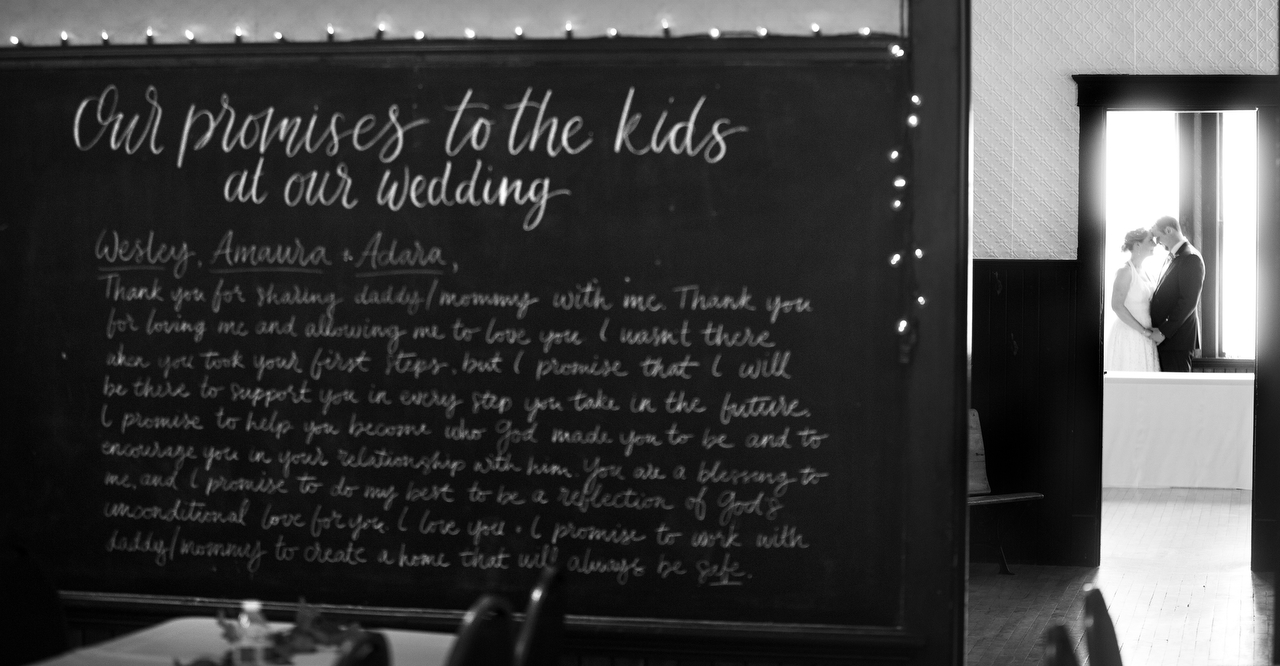 Our promises to the kids
at our wedding
Wesley, Amaura & Adara,
Thank you for sharing daddy/mommy with me. Thank you
for loving me and allowing me to love you. I wasn't there
when you took your first steps, but I promise that I will
be there to support you in every step you take in the future.
I promise to help you become who God made you to be and to
encourage you in your relationship with him. You are a blessing to
me, and I promise to do my best to be a reflection of God's
unconditional love for you. I love you. I promise to work with
daddy/mommy to create a home that will always be safe.